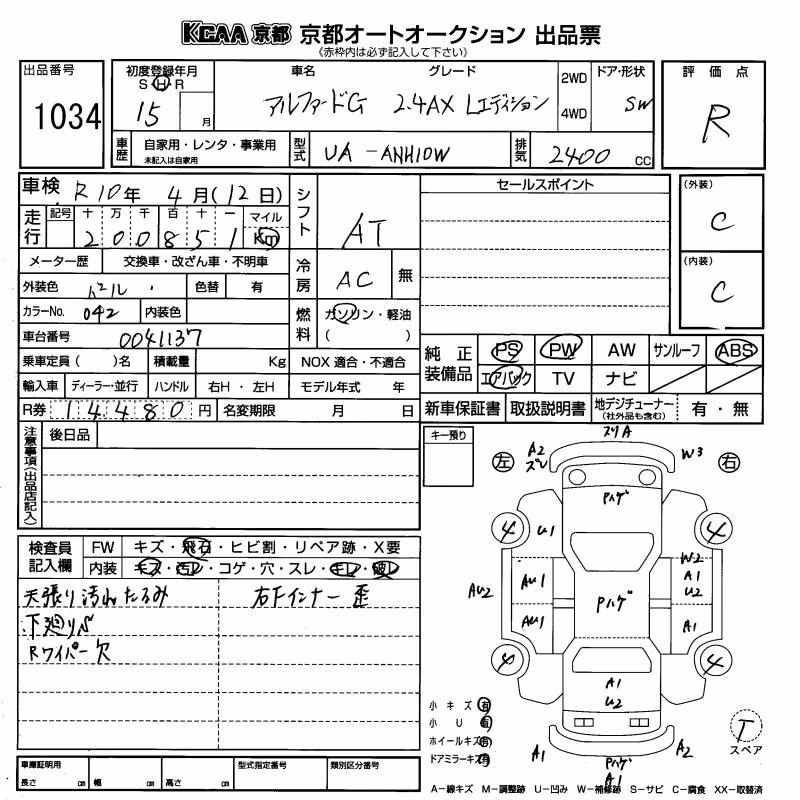 KCAA 京都 京都オートオークション 出品票
《赤枠内は必ず記入して下さい》
出品番号
1034
初度登録年月
S・H・R
15 月
車名 グレード
アルファードG 2.4AX Lエディション
2WD
4WD
ドア・形状
SW
評価点
R
車歴
自家用・レンタ・事業用
未記入は自家用
型式
UA-ANH10W
排気
2400 CC
車検 R10年 4月(12日)
走行
記号 十 万 千 百 十 一 マイル
2 0 0 8 5 1 Km
シフト
AT
メーター歴 交換車・改ざん車・不明車
外装色 色替 有
冷房
AC 無
カラーNo. 042 内装色
燃料
ガソリン・軽油
( )
車台番号 0041137
乗車定員 ( )名 積載量 Kg NOX 適合・不適合
輸入車 ディーラー・並行 ハンドル 右H・左H モデル年式 年
R券 14480円 名変期限 月 日
セールスポイント
(外装)
C
(内装)
C
純正装備品
PS PW AW サンルーフ ABS
エアバック TV ナビ
新車保証書 取扱説明書 地デジチューナー
(社外品も含む)
有・無
注意事項(出品店記入)
後日品
キー預り
検査員記入欄
FW キズ・飛石・ヒビ割・リペア跡・X要
内装 キズ・汚レ・コゲ・穴・スレ・キレ・破レ
天張り汚れたるみ 右Fインナー歪
下廻りS
Rワイパー欠
左 右
ズリA
A2
ズレ
W3
Pハゲ
4 4
U1
W2
A1
U2
AU2
AU1
Pハゲ
AU1
A1
4 4
A1
U2
小キズ 有
小U 有
ホイールキズ 有
ドアミラーキズ 有
A1
Pハゲ
A1
A2
T
スペア
車庫証明用
長さ cm 幅 cm 高さ cm
型式指定番号 類別区分番号
A−線キズ M−調整跡 U−凹み W−補修跡 S−サビ C−腐食 XX−取替済